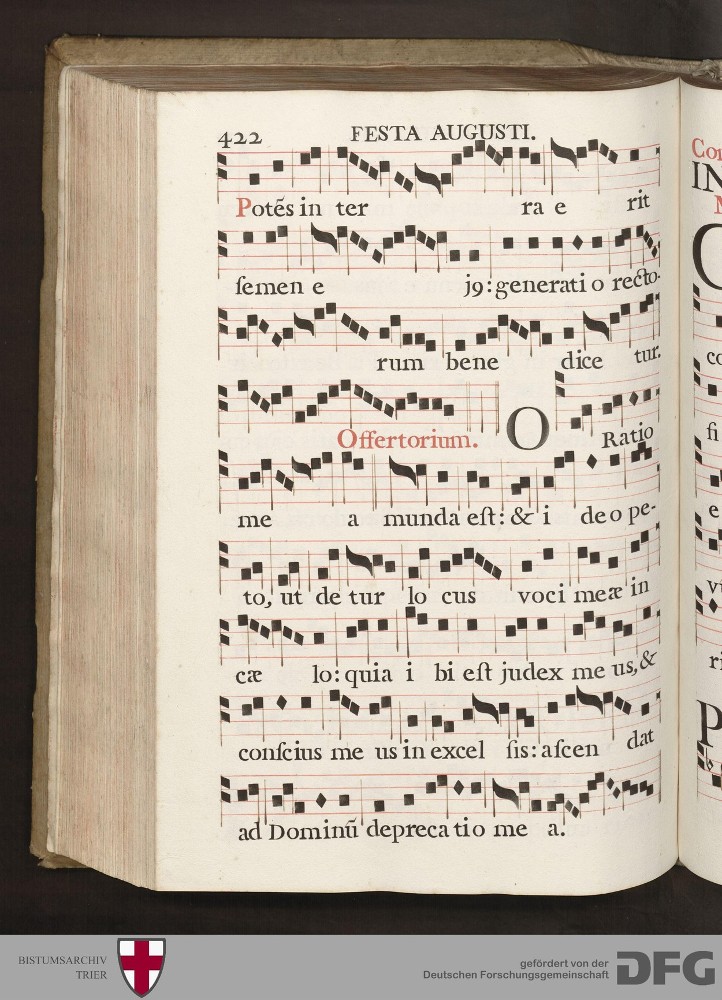 422 FESTA AUGUSTI.
Potẽs in ter ra e rit
ſemen e j9: generati o recto-
rum bene dice tur.
Offertorium. O Ratio
me a munda eſt: & i deo pe-
to, ut de tur lo cus voci meæ in
cæ lo: quia i bi eſt judex me us, &
conſcius me us in excel ſis: aſcen dat
ad Dominũ depreca tio me a.
BISTUMSARCHIV
TRIER
gefördert von der
Deutschen Forschungsgemeinschaft
DFG